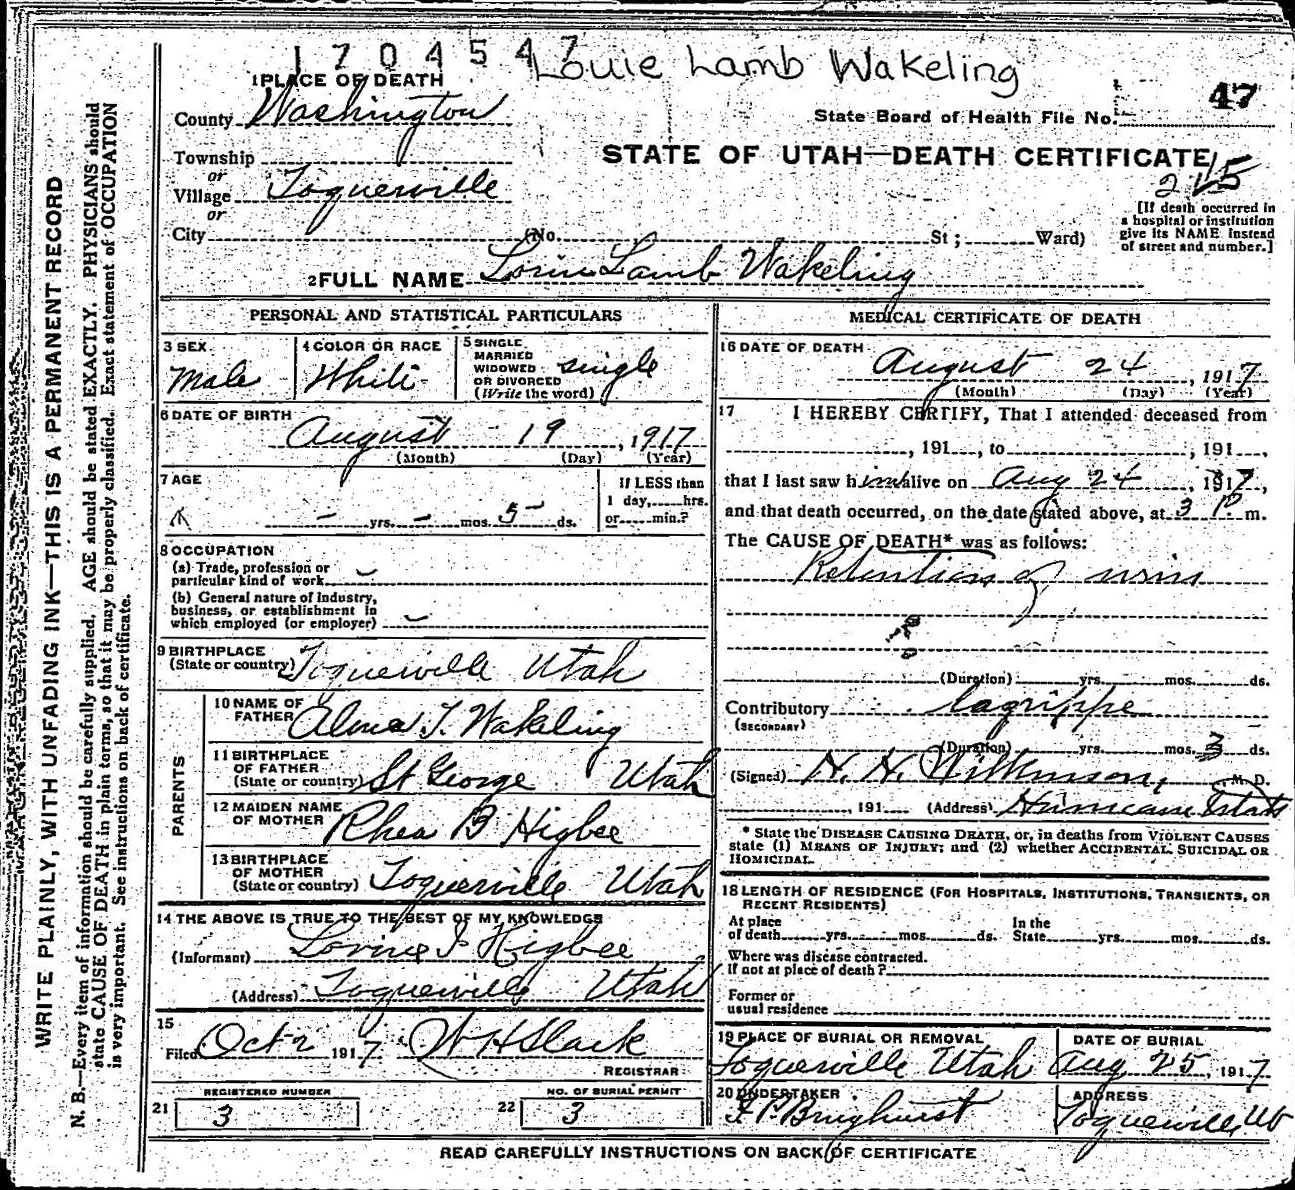 1704547 Louie Lamb Wakeling
1 PLACE OF DEATH
47
County Washington
State Board of Health File No.
Township
or
STATE OF UTAH—DEATH CERTIFICATE
Village Toquerville
or
City (No. St; Ward)
[If death occurred in
a hospital or institution
give its NAME instead
of street and number.]
2 FULL NAME Lamb Wakeling
PERSONAL AND STATISTICAL PARTICULARS
3 SEX
Male
4 COLOR OR RACE
White
5 SINGLE
MARRIED
WIDOWED
OR DIVORCED
(Write the word)
single
6 DATE OF BIRTH
August 19, 1917
(Month) (Day) (Year)
7 AGE
- yrs. - mos. 5 ds.
If LESS than
1 day, hrs.
or min.?
8 OCCUPATION
(a) Trade, profession or
particular kind of work -
(b) General nature of industry,
business, or establishment in
which employed (or employer) -
9 BIRTHPLACE
(State or country) Toquerville Utah
PARENTS
10 NAME OF
FATHER Alma T. Wakeling
11 BIRTHPLACE
OF FATHER
(State or country) St George Utah
12 MAIDEN NAME
OF MOTHER Rhea B Higbee
13 BIRTHPLACE
OF MOTHER
(State or country) Toquerville Utah
14 THE ABOVE IS TRUE TO THE BEST OF MY KNOWLEDGE
(Informant) Lorine I. Higbee
(Address) Toquerville Utah
15
Filed Oct 2 1917 W H Slack
REGISTRAR
REGISTERED NUMBER
21 3
NO. OF BURIAL PERMIT
22 3
MEDICAL CERTIFICATE OF DEATH
16 DATE OF DEATH
August 24, 1917
(Month) (Day) (Year)
17 I HEREBY CERTIFY, That I attended deceased from
, 191 , to , 191 ,
that I last saw him alive on Aug 24, 1917,
and that death occurred, on the date stated above, at 3 P m.
The CAUSE OF DEATH* was as follows:
Retention of urin
(Duration) yrs. mos. ds.
Contributory lagrippe
(SECONDARY)
(Duration) yrs. mos. 3 ds.
(Signed) N. N. Wilkinson, M. D.
, 191 (Address) Hurricane Utah
* State the DISEASE CAUSING DEATH, or, in deaths from VIOLENT CAUSES
state (1) MEANS OF INJURY; and (2) whether ACCIDENTAL, SUICIDAL OR
HOMICIDAL.
18 LENGTH OF RESIDENCE (FOR HOSPITALS, INSTITUTIONS, TRANSIENTS, OR
RECENT RESIDENTS)
At place
of death yrs. mos. ds.
In the
State yrs. mos. ds.
Where was disease contracted,
if not at place of death?
Former or
usual residence
19 PLACE OF BURIAL OR REMOVAL
Toquerville Utah
DATE OF BURIAL
Aug 25, 1917
20 UNDERTAKER
Bringhurst
ADDRESS
Toquerville Ut
READ CAREFULLY INSTRUCTIONS ON BACK OF CERTIFICATE
WRITE PLAINLY, WITH UNFADING INK—THIS IS A PERMANENT RECORD
N. B.—Every item of information should be carefully supplied. AGE should be stated EXACTLY. PHYSICIANS should
state CAUSE OF DEATH in plain terms, so that it may be properly classified. Exact statement of OCCUPATION
is very important. See instructions on back of certificate.